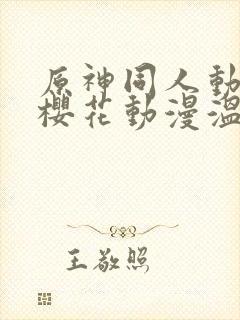 原神同人動
櫻花動漫溫
王敬照